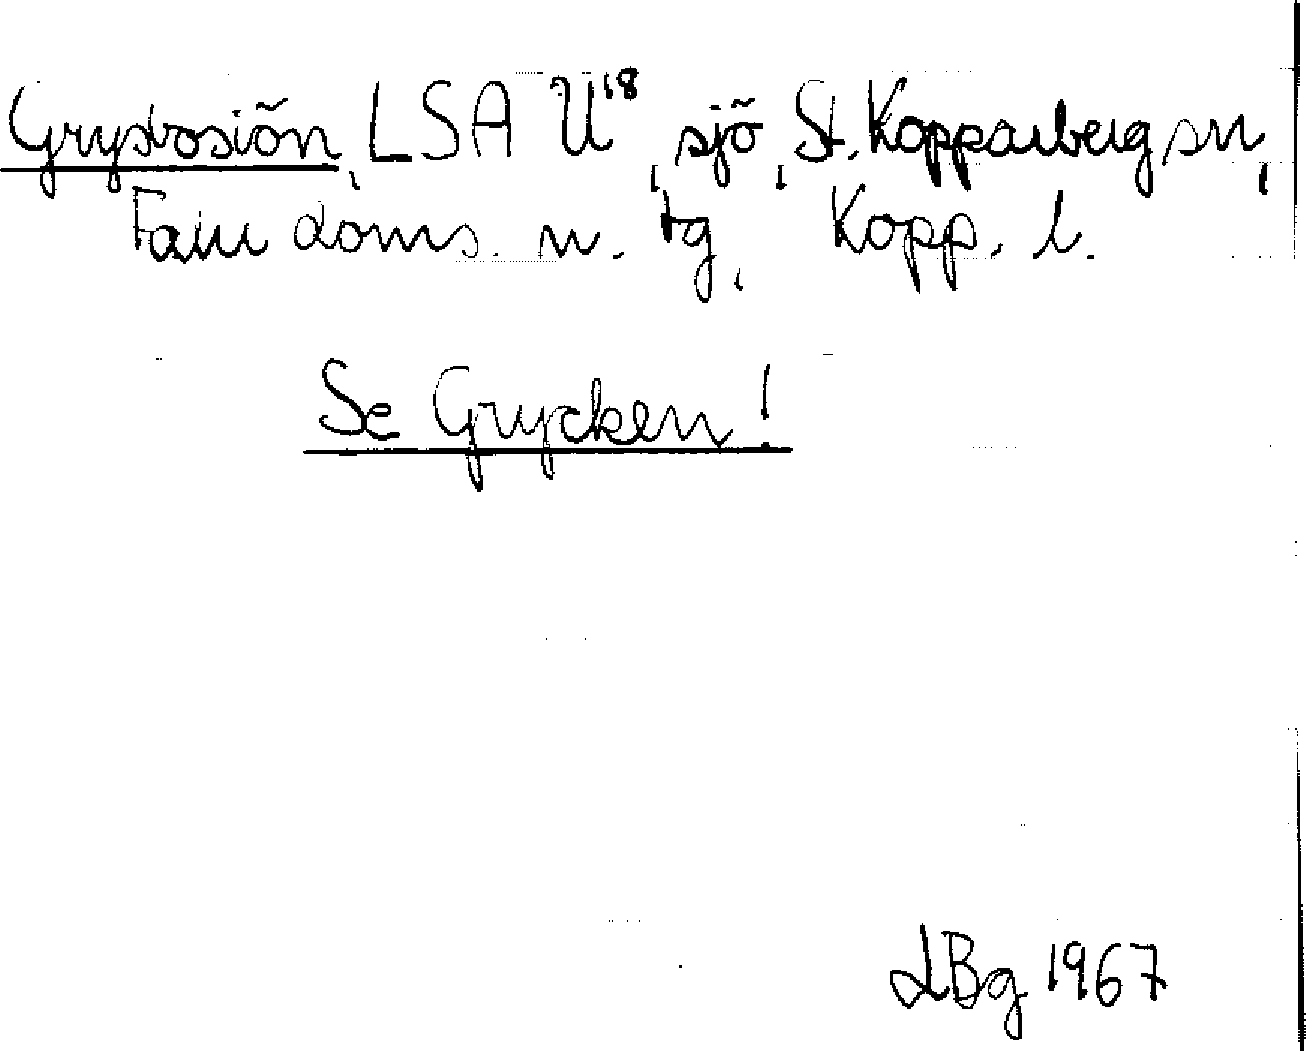 Grystosiön, LSA U18, sjö, St. Kopparberg sn,
Falu doms. n. tg, Kopp. l.
Se Grycken!
LBg 1967